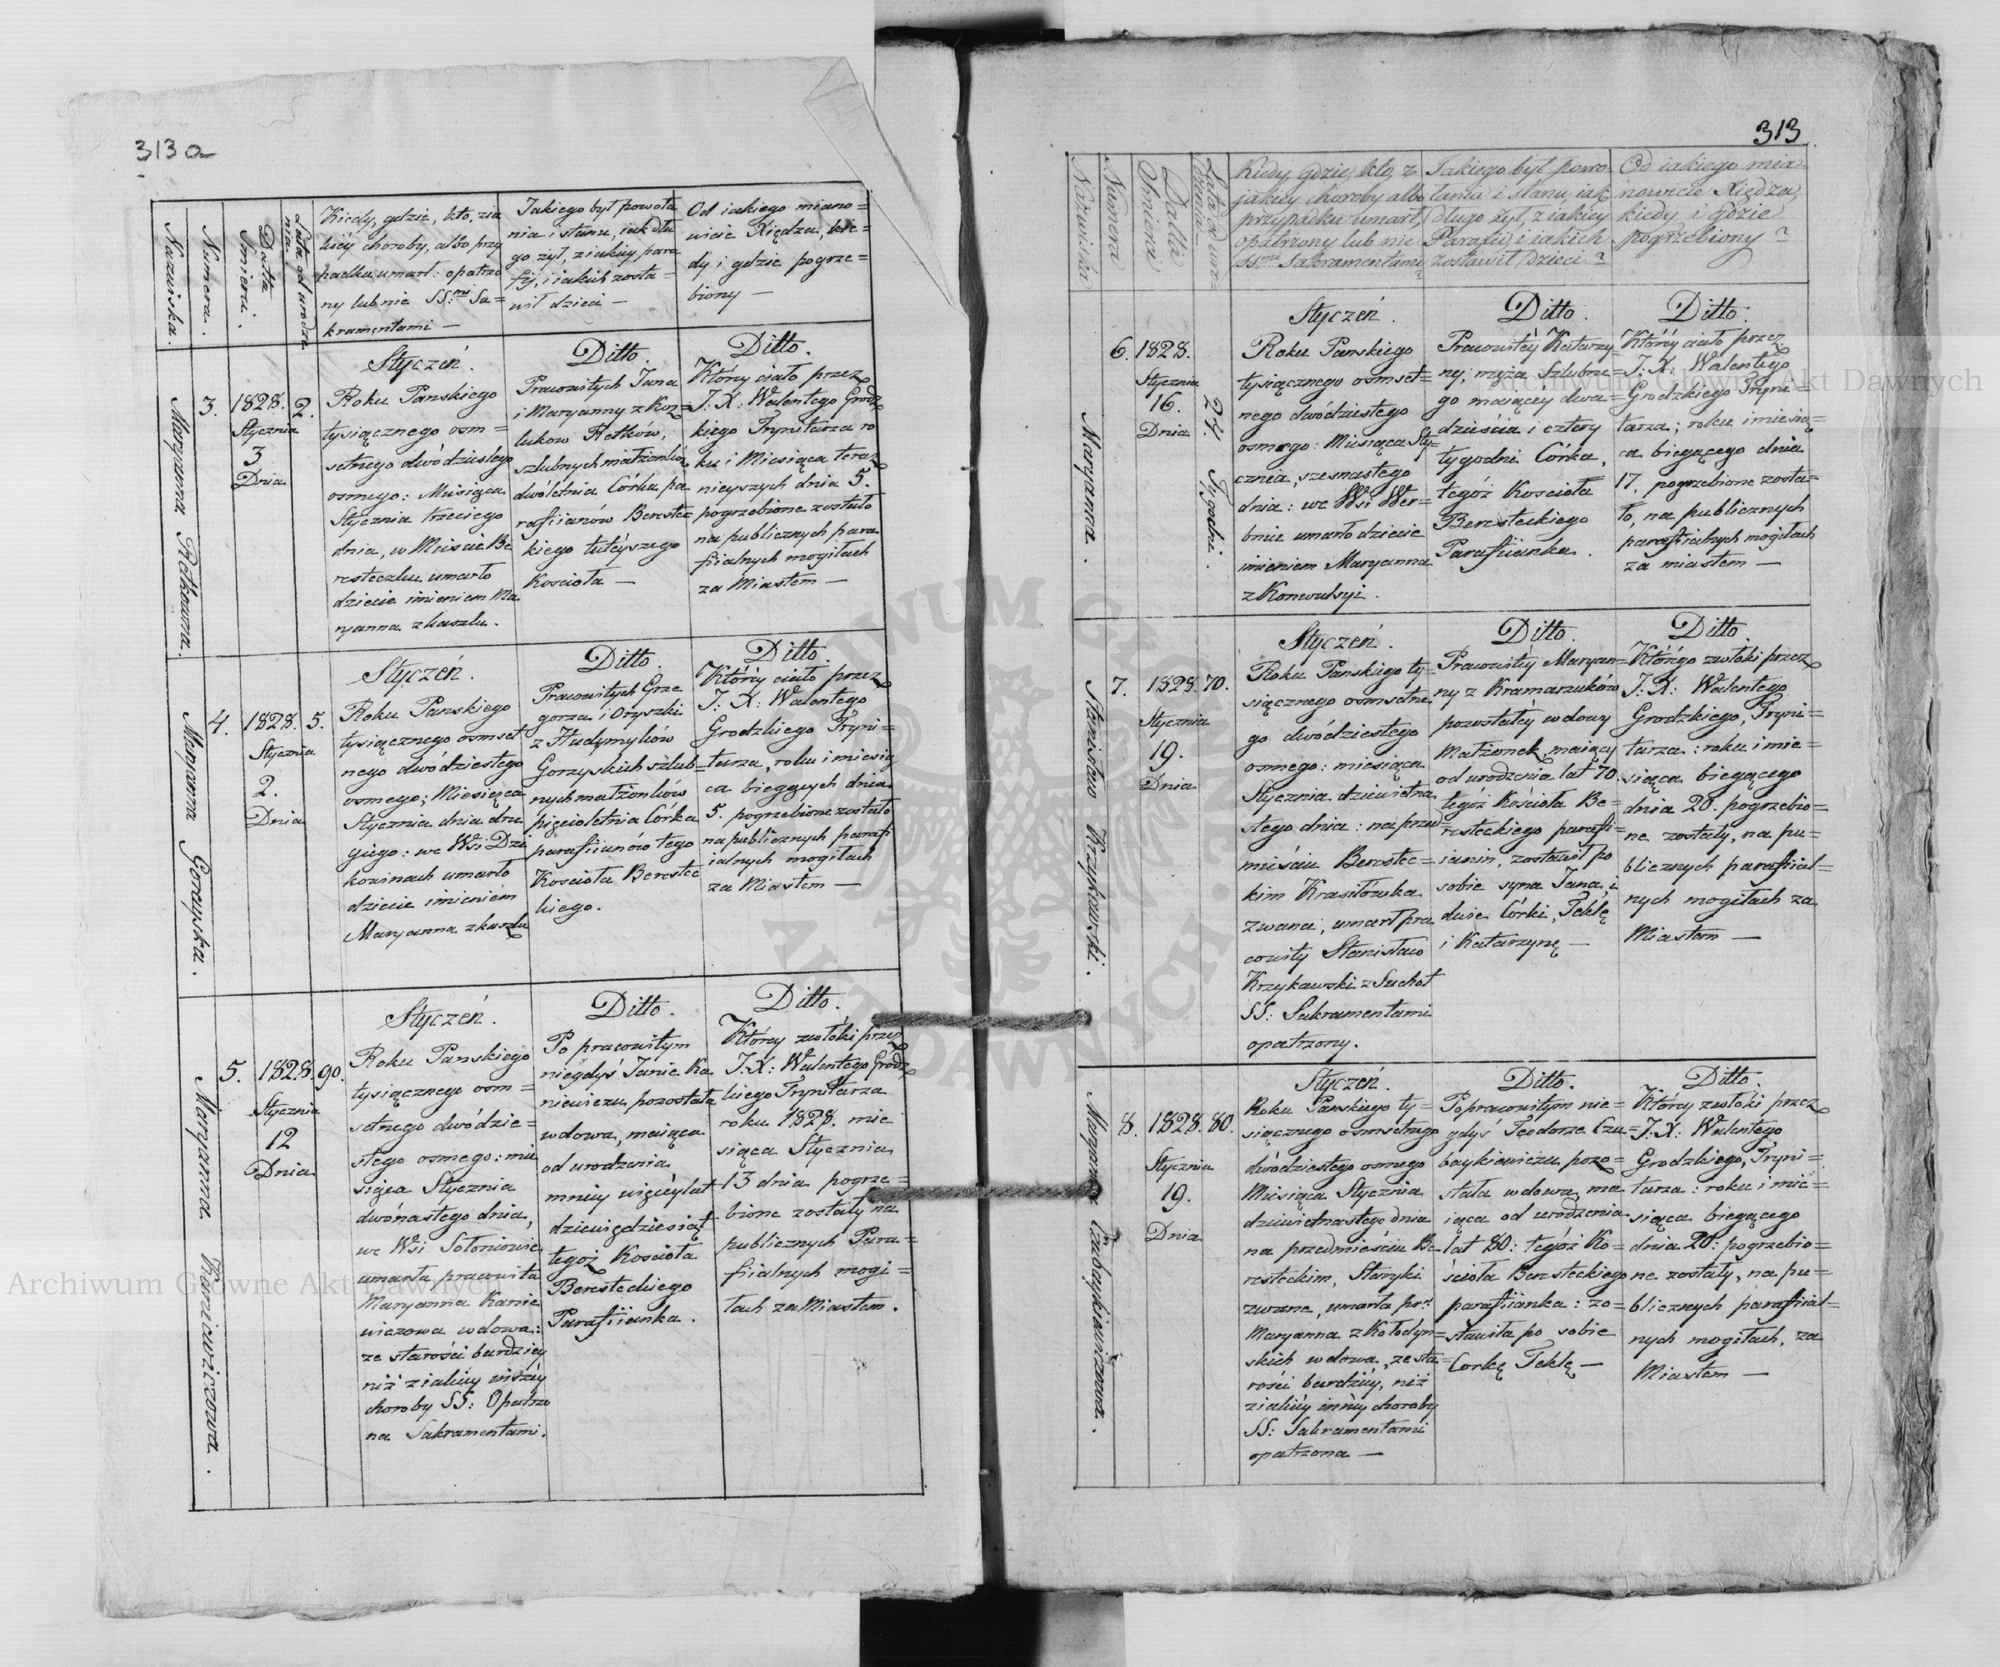 313 a
Nazwiska.
Numera.
Datta Śmierci.
Lata od urodze
nia.
Kiedy, gdzie, kto, zia
kiéy choroby, albo przy
padku umarł: opatrzo
ny lub nie SS:mi Sa=
kramentami —
Jakiego był powoła
nia i stanu, jak dłu
go żył, z iakiéy para
fij, i iakich zosta=
wił dzieci —
Od iakiego miano=
wicie Xiędza, kie=
dy i gdzie pogrze=
biony —
Maryanna Retkowna.
3.
1828.
Stycznia
3
Dnia
2.
Styczeń.
Roku Panskiego
tysiącznego osm=
setnego dwódziestego
osmego: Miesiąca
Stycznia trzeciego
dnia, w Mieście Be
resteczku umarło
dziecie imieniem Ma
ryanna z kaszlu.
Ditto.
Pracowitych Jana
i Maryanny z Koz=
lukow Retków,
szlubnych małżonków
dwóletnia Córka pa
rafiianów Berestec
kiego tutéyszego
Kościoła —
Ditto.
Któréy ciało przez
J: X: Walentego Grodz
kiego Trynitarza ro
ku i Miesiąca teraz
nieyszych dnia 5.
pogrzebione zostało
na publicznych para
fiialnych mogiłach
za Miastem —
Maryanna Gorzyska.
4.
1828.
Stycznia
2.
Dnia
5.
Styczeń.
Roku Panskiego
tysiącznego osmset
nego dwódziestego
osmego; Miesiąca
Stycznia dnia dru
giego: we Wsi Dzi
kowinach umarło
dziecie imieniem
Maryanna z kaszlu
Ditto.
Pracowitych Grze
gorza i Oryszki
z Hudymykow
Gorzyskich szlub=
nych małżonków
pięcioletnia Córka
parafiianów tego
Kościoła Berestec
kiego.
Ditto.
Któréy ciało przez
J: X: Walentego
Grodzkiego Tryni=
tarza, roku i miesią
ca bieżących dnia
5. pogrzebione zostało
na publicznych parafi
ialnych mogiłach
za Miastem —
Maryanna Kaniewiczowa.
5.
1828.
Stycznia
12
Dnia
90.
Styczeń.
Roku Panskiego
tysiącznego osm=
setnego dwódzie=
stego osmego: mie
siąca Stycznia
dwónastego dnia,
we Wsi Sołoniowie
umarła pracowita
Maryanna Kanie
wiczowa wdowa:
ze starości bardziéy
niż z iakiéy inszéy
choroby SS: Opatrzo
na Sakramentami.
Ditto.
Po pracowitym
niegdyś Janie Ka
niewiczu pozostała
wdowa, maiąca
od urodzenia
mniéy więcéy lat
dziewiędziesiąt
tegoż Kościoła
Beresteckiego
Parafiianka.
Ditto.
Któréy zwłoki przez
J: X: Walentego Grodz
kiego Trynitarza
roku 1828. mie
siąca Stycznia
13 dnia pogrze=
bione zostały na
publicznych Para=
fiialnych mogi=
łach za Miastem.
313
Nazwiska
Numera
Datta
Śmierci
Lata od uro
dzenia
Kiedy, gdzie, kto, z
jakiéy choroby albo
przypadku umarł,
opatrzony lub nie
SS:mi Sakramentami?
Jakiego był powo
łania i stanu, jak
długo żył, z iakiéy
Parafii, i iakich
zostawił dzieci?
Od iakiego mia
nowicie Xiędza,
kiedy, i gdzie
pogrzebiony?
Maryanna.
6.
1828.
Stycznia
16.
Dnia
24. Tygodni.
Styczeń.
Roku Panskiego
tysiącznego osmset=
nego dwódziestego
osmego: Miesiąca Sty=
cznia, szesnastego
dnia: we Wsi Wer=
bnie umarło dziecie
imieniem Maryanna
z Konwulsyi.
Ditto.
Pracowitéy Katarzy=
ny; męża szlubne=
go maiącéy dwa=
dzieścia i cztery
tygodni Córka,
tegóż Kościoła
Beresteckiego
Parafiianka.
Ditto.
Któréy ciało przez
J: X: Walentego
Grodzkiego Tryni=
tarza; roku i miesią=
ca biegącego dnia
17. pogrzebione zosta=
ło, na publicznych
parafiialnych mogiłach
za miastem —
Stanisław Krzykowski.
7.
1828.
Stycznia
19.
Dnia
70.
Styczeń.
Roku Panskiego ty=
siącznego osmsetne
go dwódziestego
osmego: miesiąca
Stycznia dziewietna
stego dnia: na przed=
mieściu Berestec=
kim Krasiłówka
zwana, umarł pra
cowity Stanisław
Krzykawski z Suchot
SS: Sakramentami
opatrzony.
Ditto.
Pracowitéy Maryan=
ny z Kramarzuków
pozostałéy wdowy
Małżonek, maiący
od urodzenia lat 70.
tegóż Kościoła Be=
resteckiego parafi=
ianin, zostawił po
sobie syna Jana, i
dwie Córki, Teklę
i Katarzynę —
Ditto.
Którégo zwłoki przez
J: X: Walentego
Grodzkiego, Tryni=
tarza: roku i mie=
siąca biegącego
dnia 20. pogrzebio=
ne zostały, na pu=
blicznych parafiial=
nych mogiłach za
Miastem —
Maryanna Czubaykiewiczowa.
8.
1828.
Stycznia
19.
Dnia
80.
Styczeń.
Roku Panskiego ty=
siącznego osmsetnego
dwódziestego osmego
Miesiąca Stycznia
dziewiętnastego dnia
na przedmieściu Be=
resteckim, Staryki
zwane, umarła pr:
Maryanna z Kołodyn=
skich wdowa, ze sta=
rości bardziéy, niż
z iakiéy innéy choroby
SS: Sakramentami
opatrzona —
Ditto.
Po pracowitym nie=
gdyś Teodorze Czu=
baykiewiczu pozo=
stała wdowa, ma
iąca od urodzenia
lat 80: tegóż Ko=
ścioła Beresteckiego
parafiianka: zo=
stawiła po sobie
Corkę Teklę —
Ditto.
Któréy zwłoki przez
J: X: Walentego
Grodzkiego, Tryni=
tarza: roku i mie=
siąca biegącego
dnia 20: pogrzebio=
ne zostały, na pu=
blicznych parafiial=
nych mogiłach, za
Miastem —
Archiwum Główne Akt Dawnych
Archiwum Główne Akt Dawnych
ARCHIWUM GŁÓWNE AKT DAWNYCH